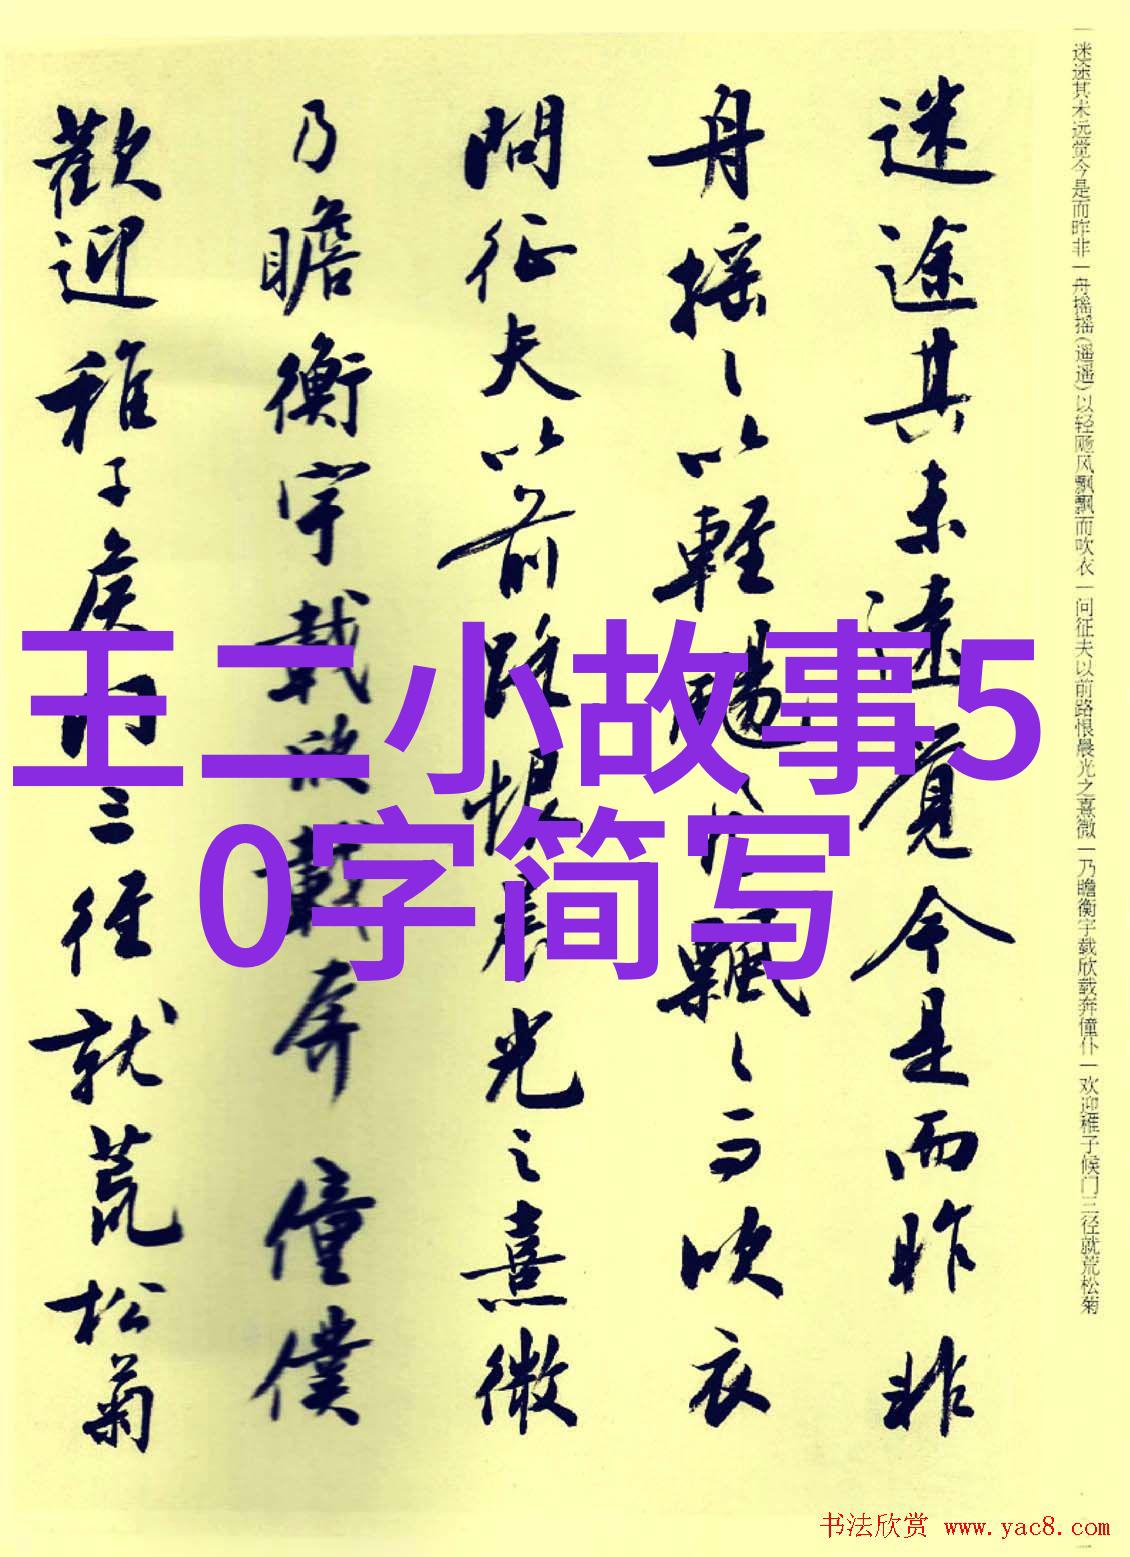 迷途其未远觉今是而昨非
舟摇〻以輕颺風飄〻而吹衣
問征夫以前路恨晨光之熹微
乃瞻衡宇载欣载奔僮僕
歡迎稚子矦门三径就荒松菊
一迷途其未远觉今是而昨非一舟摇摇(遥遥)以轻飏风飘飘而吹衣一问征夫以前路恨晨光之熹微一乃瞻衡宇载欣载奔僮仆一欢迎稚子候门三径就荒松菊
王二小故事5
0字简写
书法欣赏 www.yac8.com